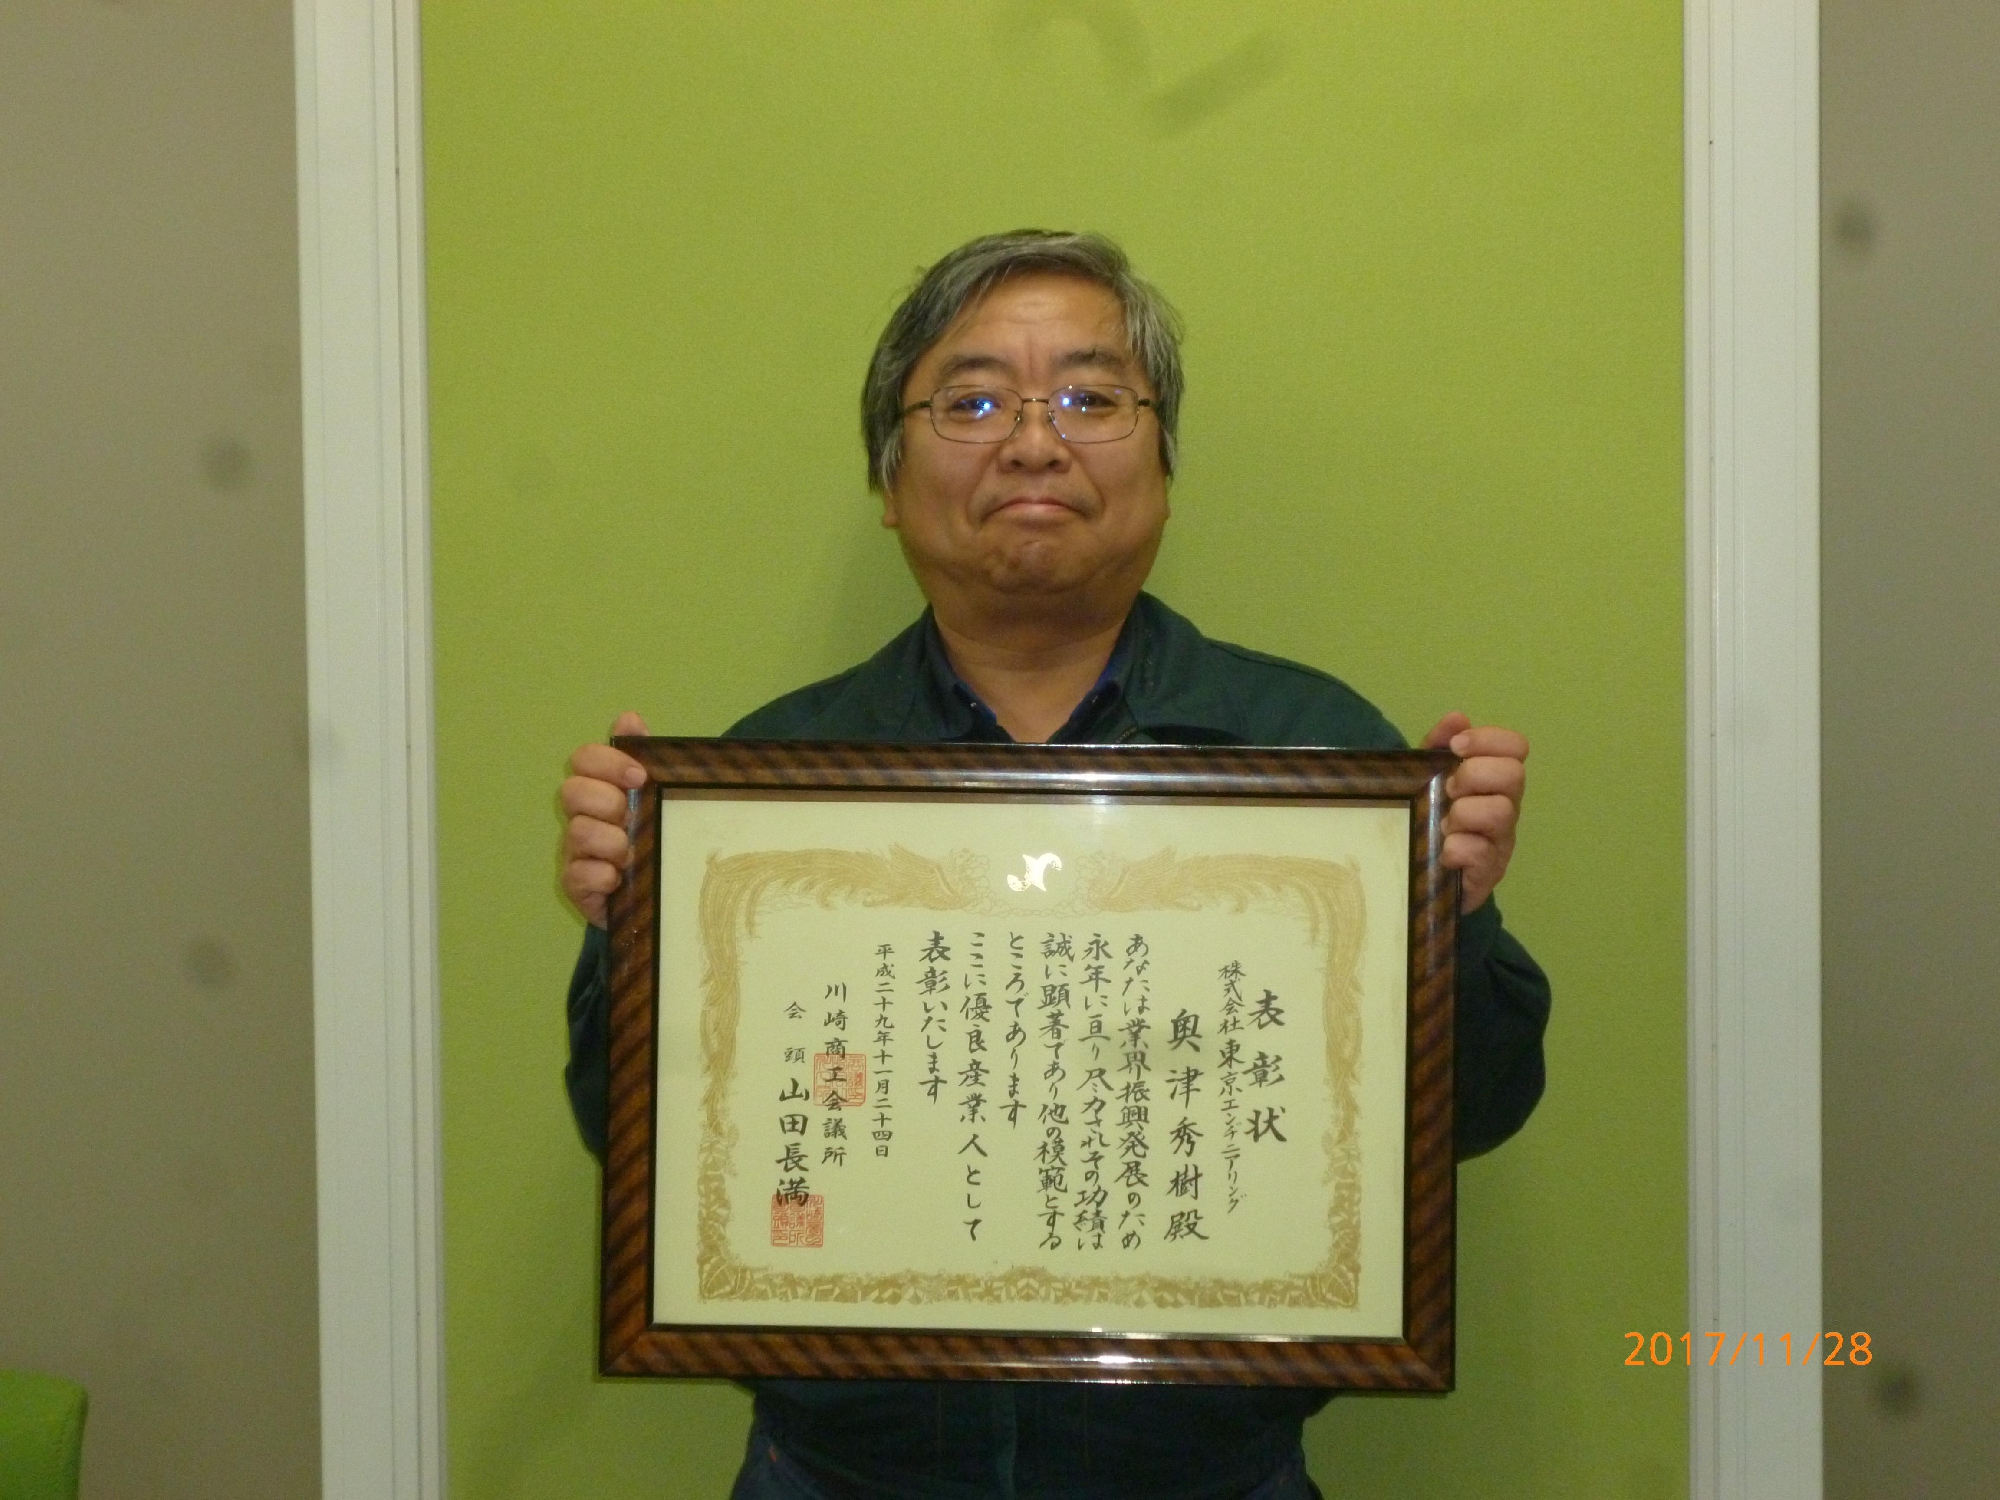 表彰状
株式会社東京エンヂニアリング
奥津秀樹殿
あなたは業界振興発展のため
永年に亘り尽力されその功績は
誠に顕著であり他の模範とする
ところであります
ここに優良産業人として
表彰いたします
平成二十九年十一月二十四日
川崎商工会議所
会頭 山田長満
2017/11/28